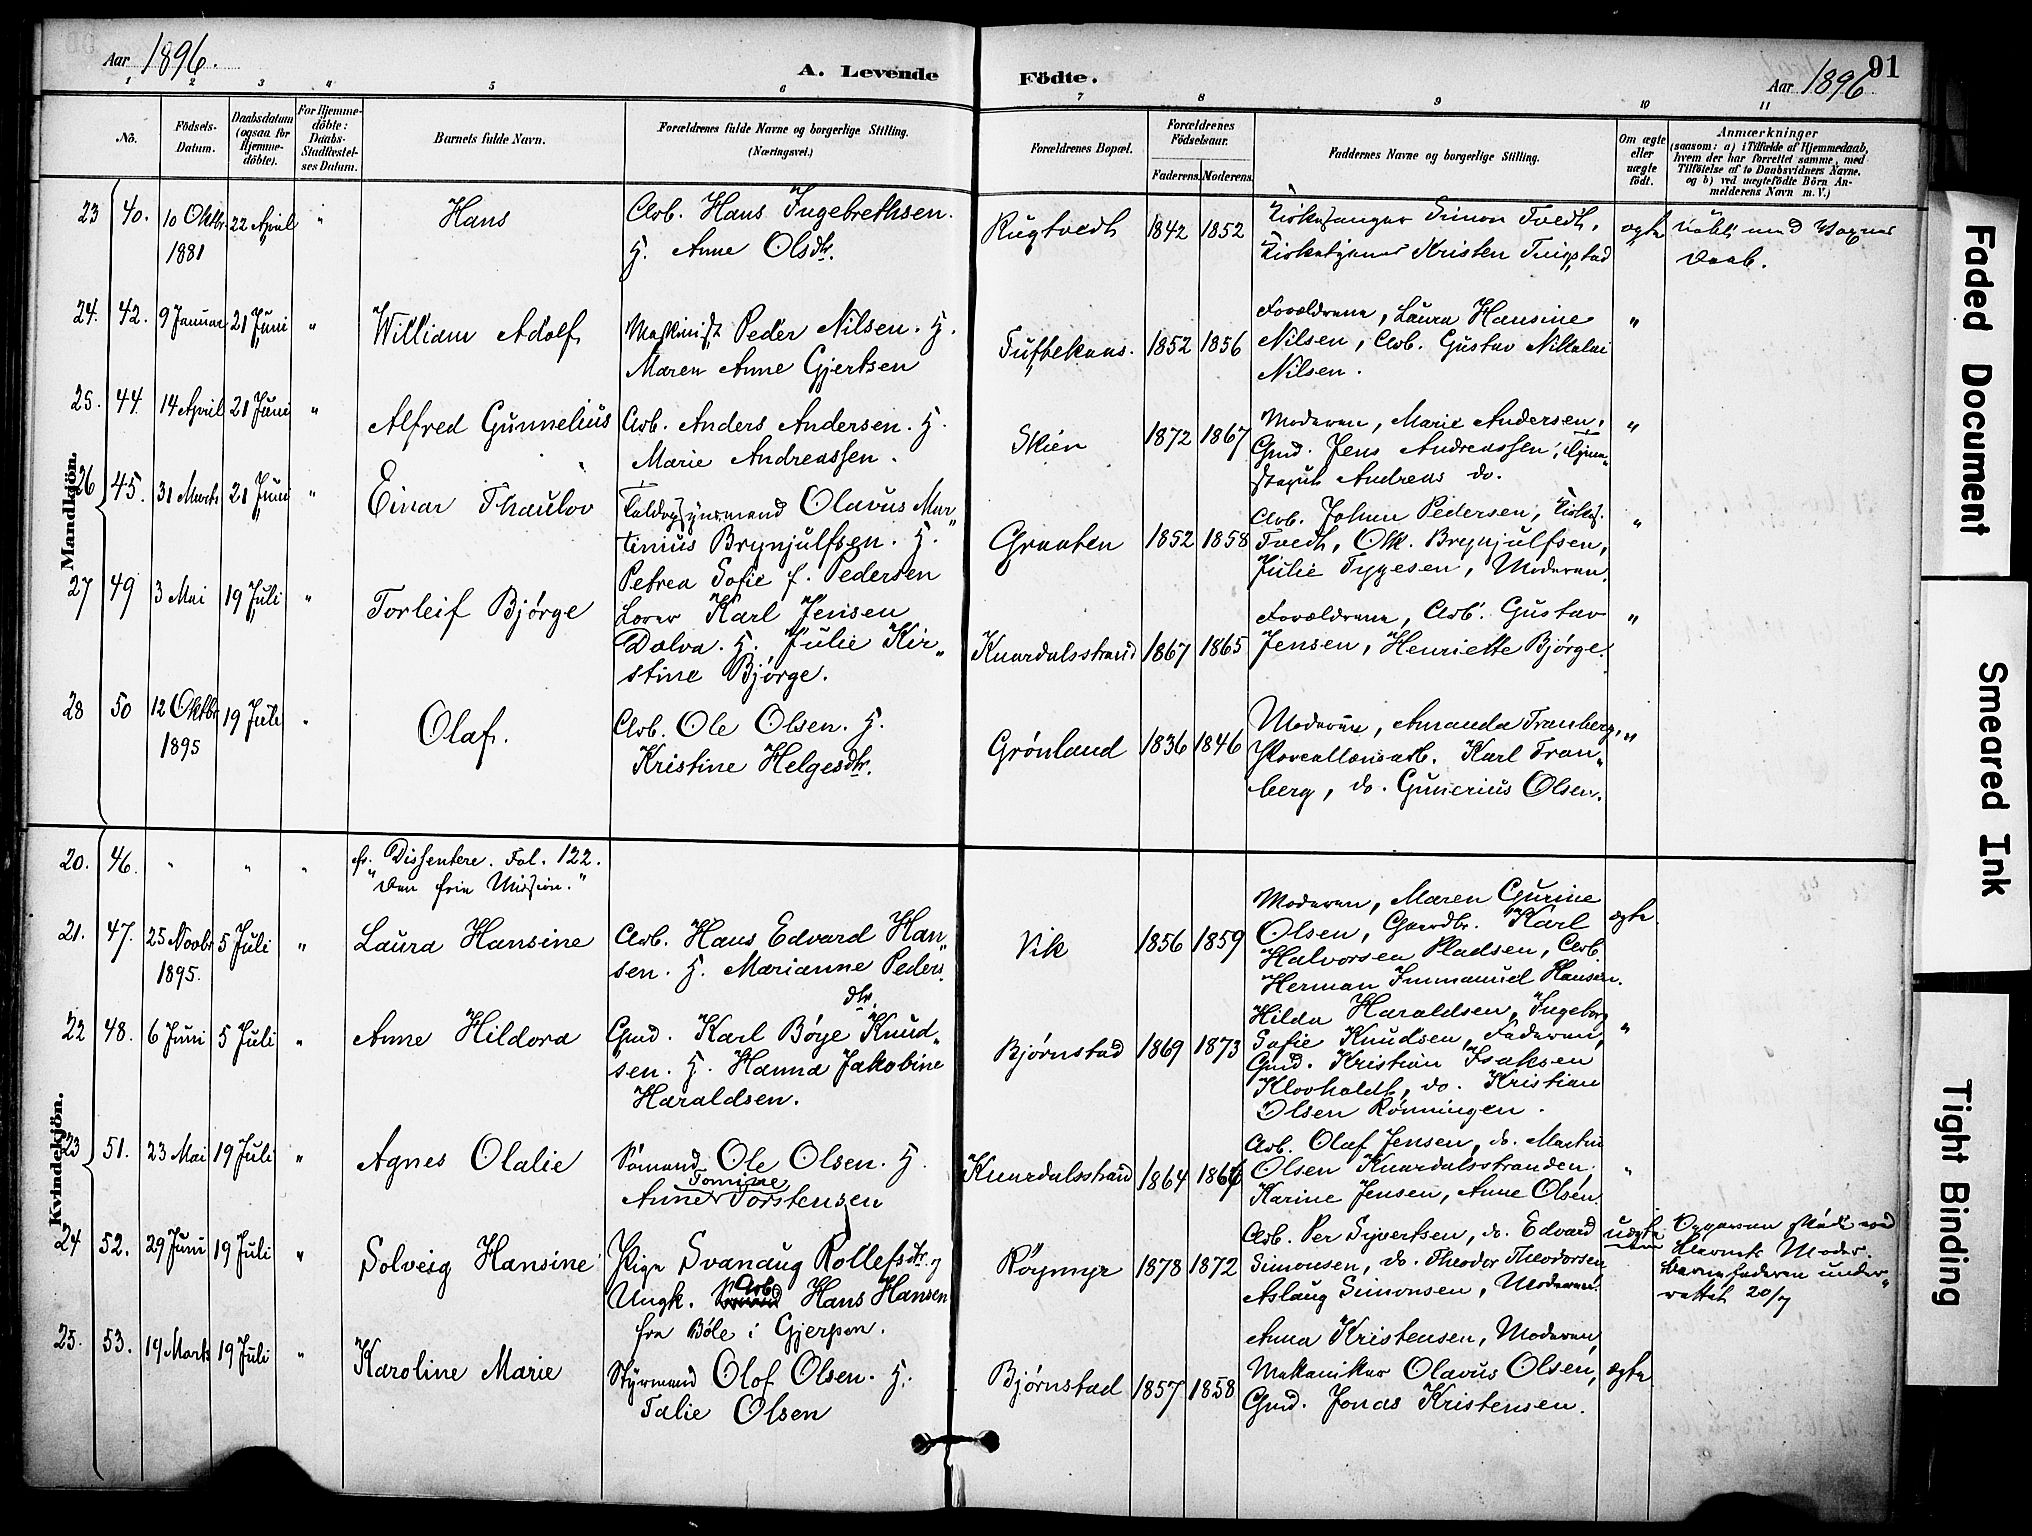 Aar 1896.
A. Levende Födte.
Aar 1896
91
1 2 3 4 5 6 7 8 9 10 11
No.
Födsels-Datum.
Daabsdatum (ogsaa for Hjemme-döbte).
For Hjemme-döbte: Daabs-Stadfæstel-ses Datum.
Barnets fulde Navn.
Forældrenes fulde Navne og borgerlige Stilling. (Næringsvei.)
Forældrenes Bopæl.
Forældrenes Födselsaar.
Faderens. Moderens.
Faddernes Navne og borgerlige Stilling.
Om ægte eller uægte födt.
Anmærkninger
(saasom: a) i Tilfælde af Hjemmedaab, hvem der har forrettet samme, med Tilföielse af to Daabsvidners Navne. og b) ved uægtefödte Börn An-melderens Navn m. V.)
Mandkjön.
23 40. 10 Oktbr. 1881 22 April " Hans
Arb. Hans Ingebrethsen.
H. Anne Olsdtr.
Rugtvedt 1842 1852
Kirkesanger Simon Tvedt,
Kirketjener Kristen
ægte
Daab.
24. 42. 9 Januar 21 Juni " William Adolf
Maskinist Peder Nilsen. H.
Maren Anne Gjertsen
Tuftekaas. 1852 1856
Forældrene, Laura Hansine
Nilsen, Arb. Gustav Nikolai
Nilsen.
"
25. 44. 14 April 21 Juni " Alfred Gunnelius
Arb. Anders Andersen. H.
Marie Andreassen.
Skien 1872 1867
Moderen, Marie Andersen,
Gmd. Jens Andreassen,
Andreas do.
"
26 45. 31 Marts 21 Juni " Einar Thaulov
Olavus Mar-
tinius Brynjulfsen. H.
Petrea Sofie f. Pedersen
Graaten 1852 1858
Arb. Johan Pedersen, Kirkes.
Tvedt, Brynjulfsen,
Julie Tygesen, Moderen.
"
27 49 3 Mai 19 Juli " Torleif Bjørge
Karl Jensen
Dolva. H. Julie Kir-
stine Bjørge.
Knardalsstrand 1867 1865
Forældrene, Arb. Gustav
Jensen, Henriette Bjørge.
"
28 50 12 Oktbr 1895 19 Juli " Olaf.
Arb. Ole Olsen. H.
Kristine Helgesdtr.
Grönland 1836 1846
Moderen, Amanda Tranberg,
Porcellænsarb. Karl Tran-
berg, do. Gunerius Olsen.
"
Kvindekjön.
20. 46. " " "
cfr. Dissentere. Fol. 122.
"Den frie Mission."
21. 47. 25 Novbr 1895. 5 Juli " Laura Hansine
Arb. Hans Edvard Han-
sen. H. Marianne Peders
dtr.
Vik 1856 1859
Moderen, Maren Gurine
Olsen, Gaardbr. Karl
Halvorsen Pladsen, Arb.
Herman Immanuel Hansen.
ægte
22 48. 6 Juni 5 Juli " Anne Hildora
Gmd. Karl Bøye Knud-
sen. H. Hanna Jakobine
Haraldsen.
Bjørnstad 1869 1873
Hilda Haraldsen, Ingeborg
Sofie Knudsen, Faderen,
Gmd. Kristian Isaksen
Klovholdt, do. Kristian
Olsen Rønningen.
"
23 51. 23 Mai 19 Juli " Agnes Olalie
Sömand Ole Olsen. H.
Tomine
Anne Torstensen
Knardalsstrand 1864 1866
Arb. Olaf Jensen, do. Martin
Olsen Knardalsstranden,
Karine Jensen, Anne Olsen.
"
24 52. 29 Juni 19 Juli " Solveig Hansine
Pige Svanaug Rollefsdtr. og
Ungk. Arb. Hans Hansen
fra Bøle i Gjerpen.
Röymyr 1878 1872
Arb. Per Syvertsen, do. Edvard
Simonsen, do. Theodor Theodorsen,
Aslaug Simonsen, Moderen.
uægte
Opgaven ved
Barnets Moder.
Barnefaderen under-
rettet 20/7
25. 53. 19 Marts 19 Juli " Karoline Marie
Styrmand Olof Olsen. H.
Talie Olsen
Bjørnstad 1857 1858
Anna Kristensen, Moderen,
Mekaniker Olavus Olsen,
Gmd. Jonas Kristensen.
ægte
Faded Document
Smeared Ink
Tight Binding